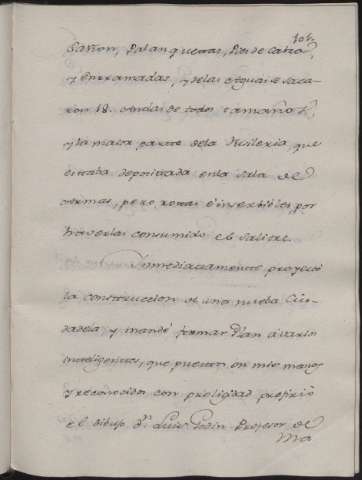 104.
Carbon, Palanquetas, Pies de Cabra,
y Enrramadas, y de las Aguas se saca-
ron 12. Anclas de todos tamaños,
y la maior parte de la Fusileria que
estaba depositada en la Sala de
Armas, pero rotas é inservibles por
haverlas consumido el Salitre.
Immediatamente proyecté
la construccion de una nueba Ciu-
dadela y mandé formar Plan á varios
inteligentes, que puestos en mis manos
y reconocidos con prolixidad preferi
el dibujo de Dn. Luis Godin Profesor de
Ma